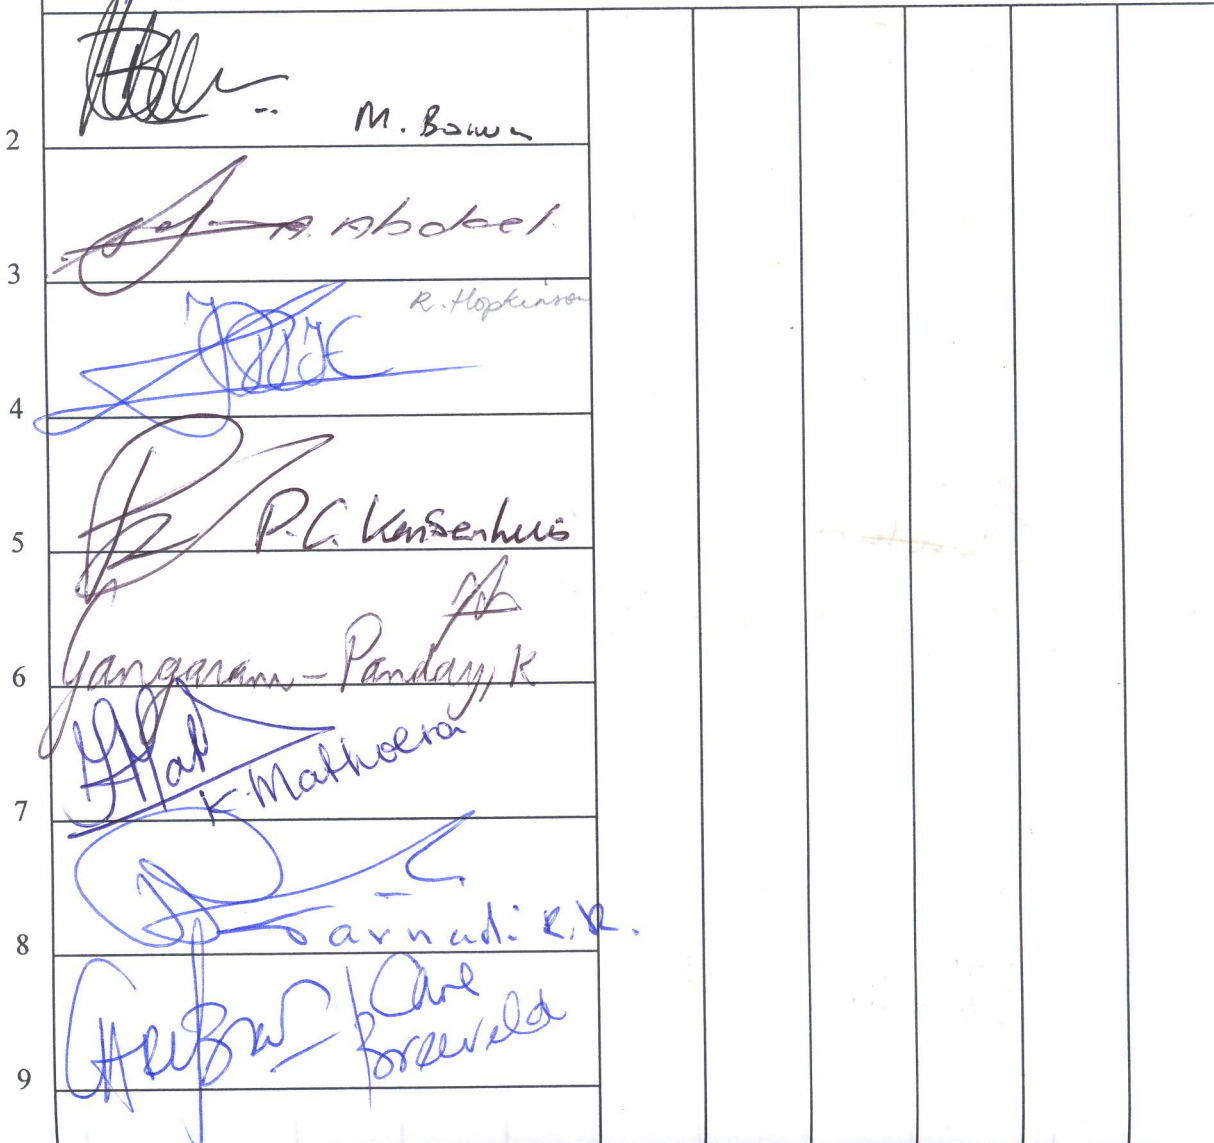 M. Bouva
2
A. Abdoel
3
R. Hopkinson
4
P.C. Kensenhuis
5
Gangaram-Panday, K
6
K. Mathoera
7
Sarnadi R.R.
8
Carl
Breeveld
9